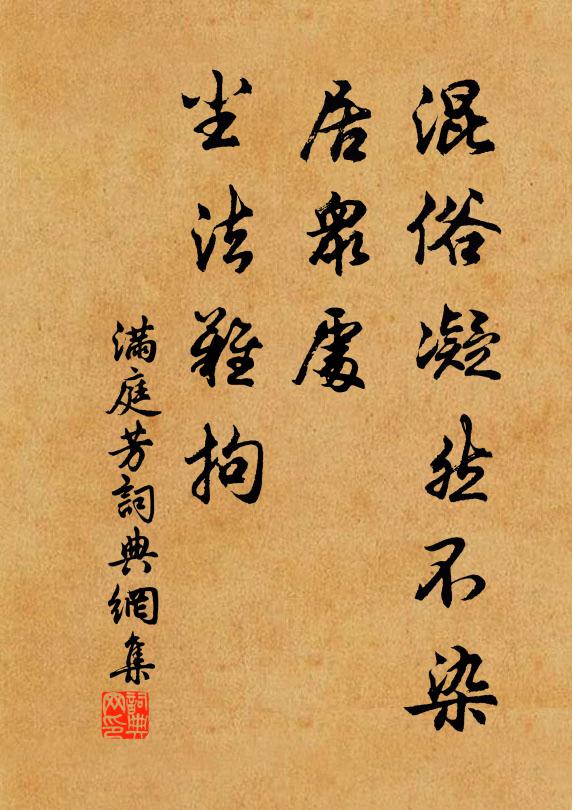 混俗凝然不染
居眾處
坐法難拘
滿庭芳詞典網集
詞典
网印